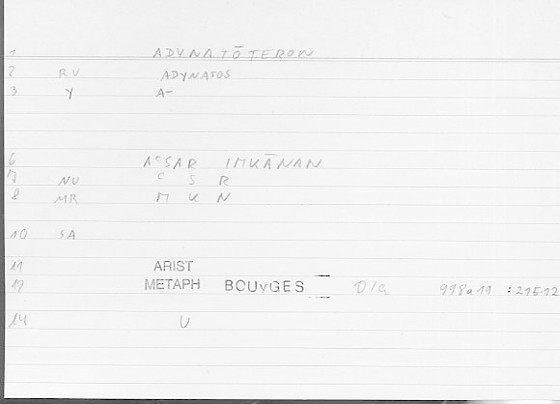 1 ADYNATŌTERON
2 RV ADYNATOS
3 Y A-
6 AᶜSAR IMKĀNAN
7 NU C S R
8 MR M K N
10 SA
11 ARIST
12 METAPH BOUyGES 0/a 998a19 :215.12
14 U